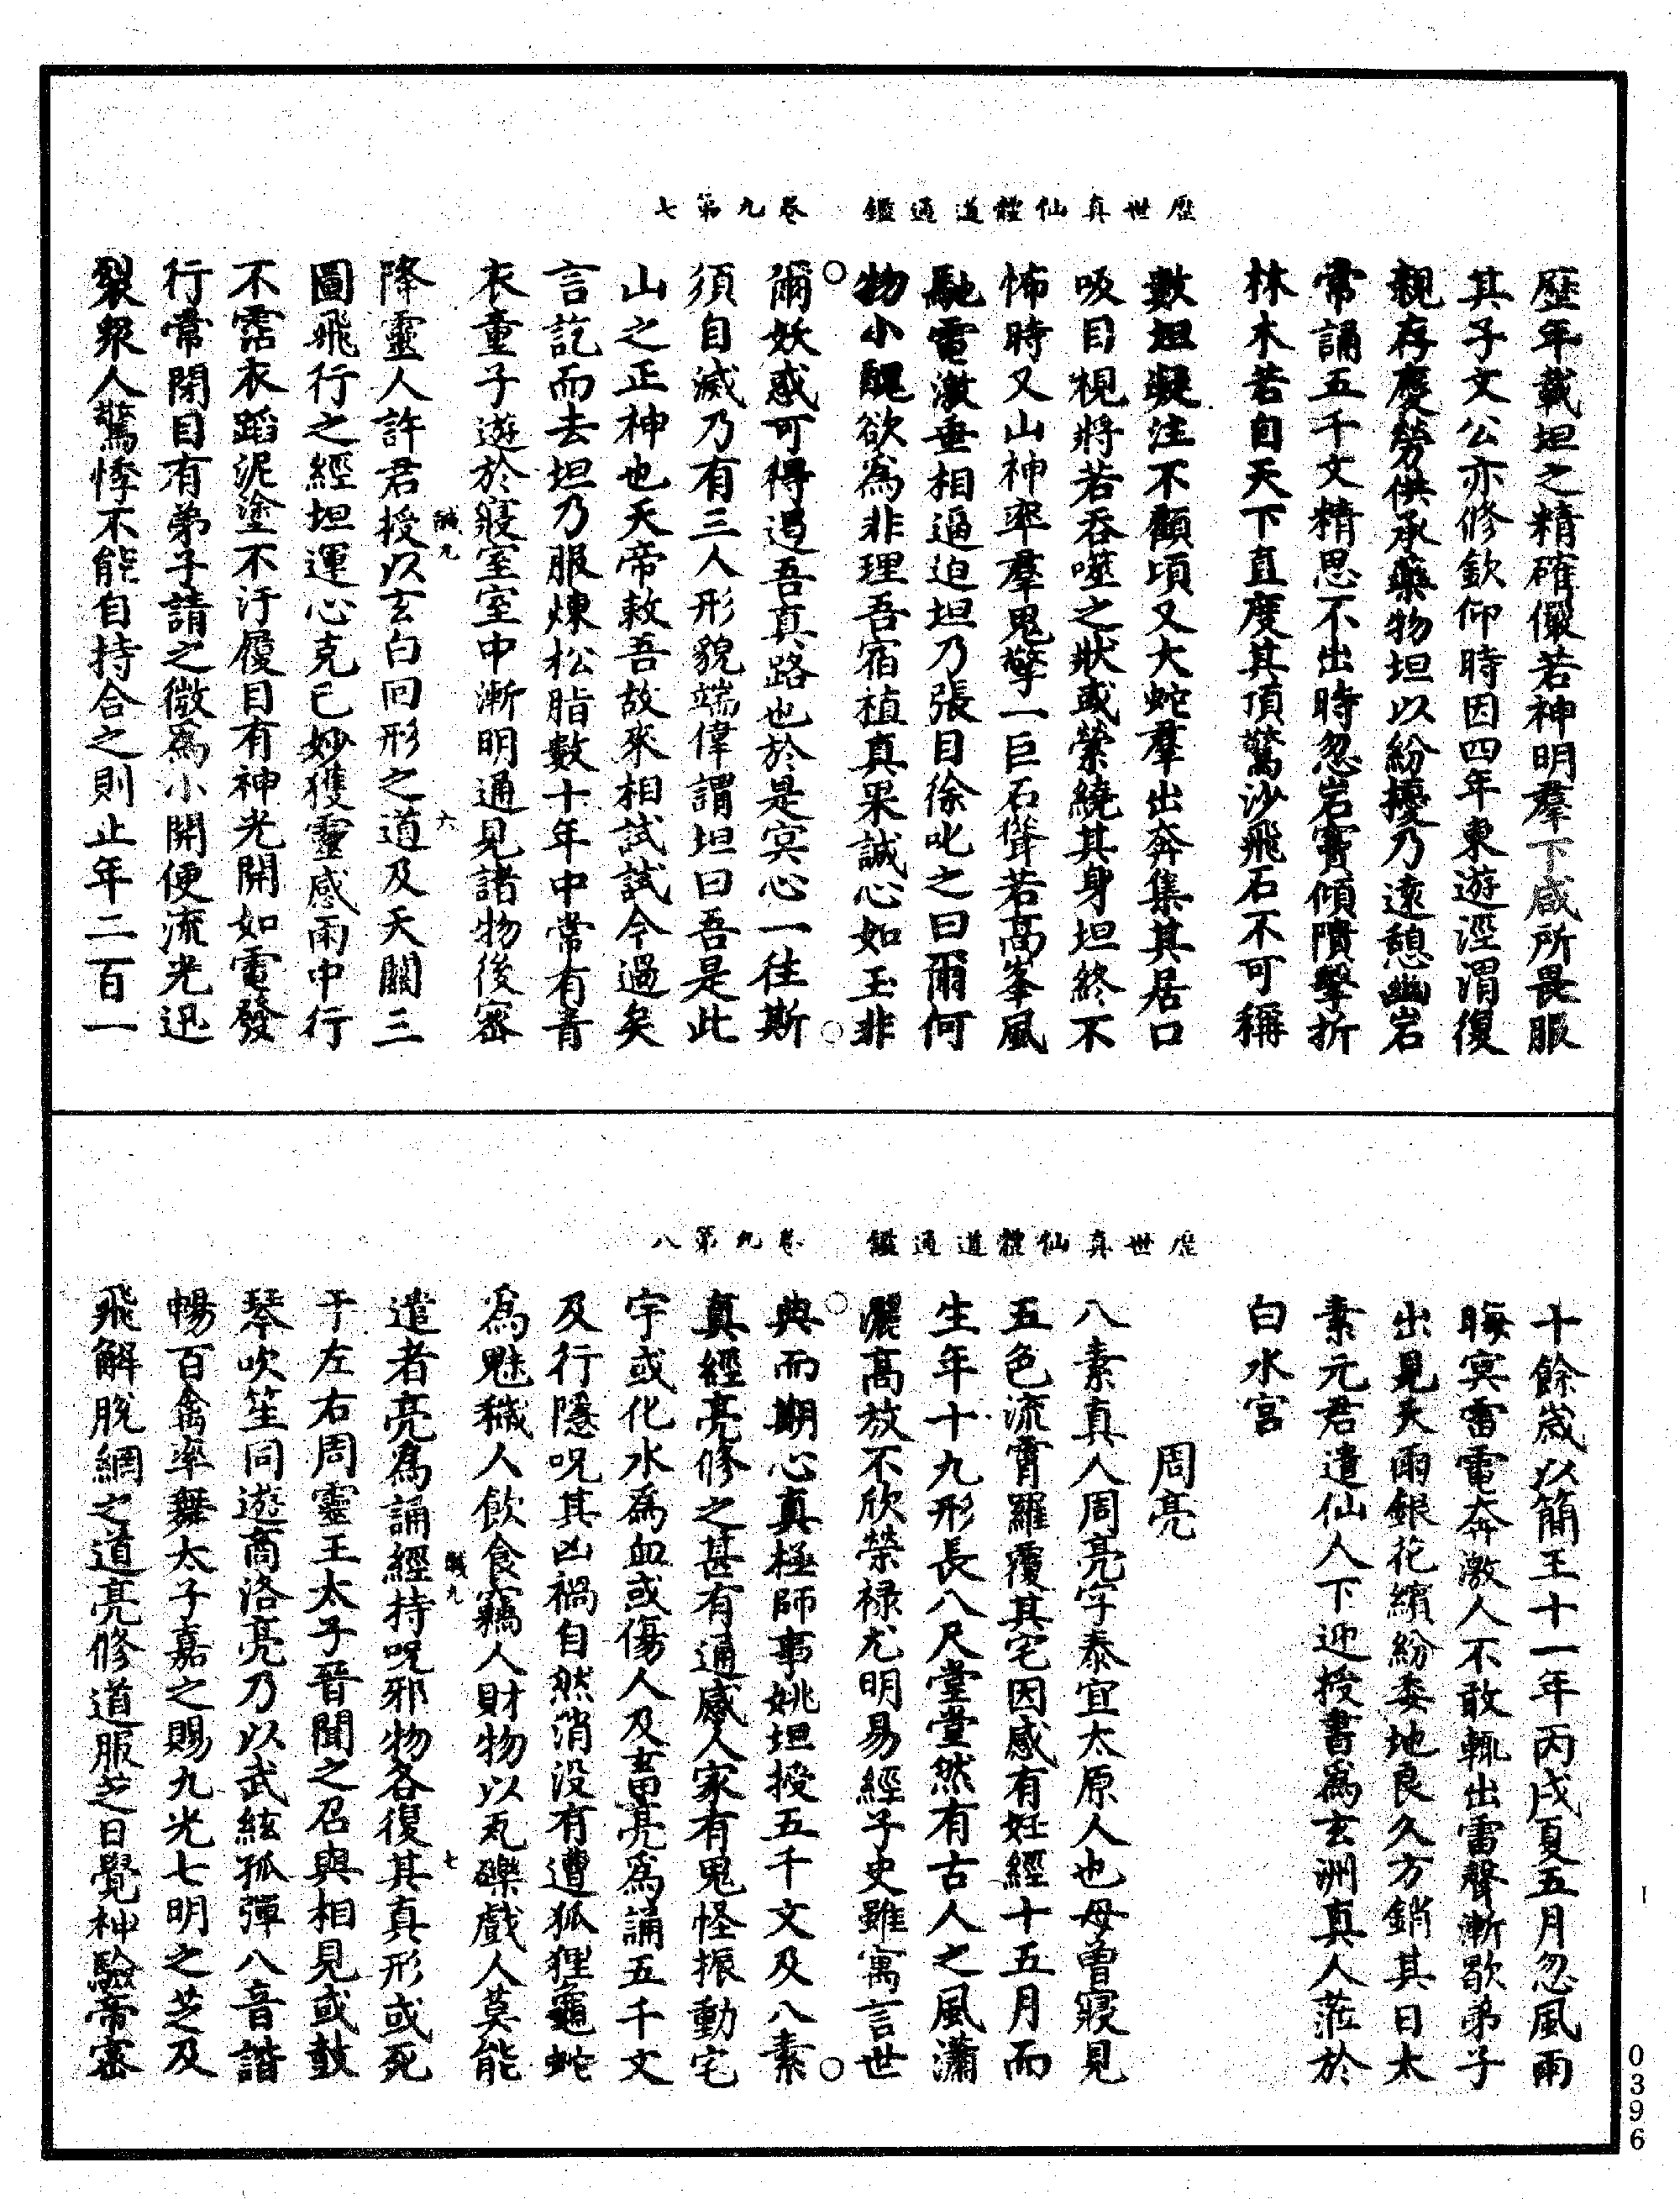 歷世真仙體道通鑑　卷九第七
歷年載坦之精確儼若神明羣下咸所畏服
其子文公亦修欽仰時因四年東遊涇渭復
親存慶勞供承藥物坦以紛擾乃遠憩幽岩
常誦五千文精思不出時忽岩竇傾隤擊折
林木若自天下直度其頂驚沙飛石不可稱
數坦凝注不顧頃又大蛇羣出奔集其居口
吸目視將若吞噬之狀或縈繞其身坦終不
怖時又山神率羣鬼擎一巨石聳若高峯風
馳電激垂相逼迫坦乃張目徐叱之曰爾何
物小醜欲為非理吾宿植真果誠心如玉非
爾妖惑可得過吾真路也於是冥心一往斯
須自滅乃有三人形貌端偉謂坦曰吾是此
山之正神也天帝敕吾故來相試試今過矣
言訖而去坦乃服煉松脂數十年中常有青
衣童子遊於寢室室中漸明通見諸物後密
鹹九　六
降靈人許君授以玄白回形之道及天關三
圖飛行之經坦運心克己妙獲靈感雨中行
不霑衣蹈泥塗不汙履目有神光開如電發
行常閉目有弟子請之微為小開便流光迅
裂眾人驚悸不能自持合之則止年二百一
歷世真仙體道通鑑　卷九第八
十餘歲以簡王十一年丙戌夏五月忽風雨
晦冥雷電奔激人不敢輒出雷聲漸歇弟子
出見天雨銀花繽紛委地良久方銷其日太
素元君遣仙人下迎授書為玄洲真人蒞於
白水宮
周亮
八素真人周亮字泰宜太原人也母曾寢見
五色流霄羅覆其宅因感有妊經十五月而
生年十九形長八尺堂堂然有古人之風瀟
灑高放不欣榮祿尤明易經子史雖寓言世
典而期心真極師事姚坦授五千文及八素
真經亮修之甚有通感人家有鬼怪振動宅
宇或化水為血或傷人及畜亮為誦五千文
及行隱呪其凶禍自然消没有遭狐狸龜蛇
為魅穢人飲食竊人財物以瓦礫戲人莫能
鹹九　七
遣者亮為誦經持呪邪物各復其真形或死
于左右周靈王太子晉聞之召與相見或鼓
琴吹笙同遊商洛亮乃以武絃孤彈八音諧
暢百禽率舞太子嘉之賜九光七明之芝及
飛解脫網之道亮修道服芝日覺神驗帝密
0396